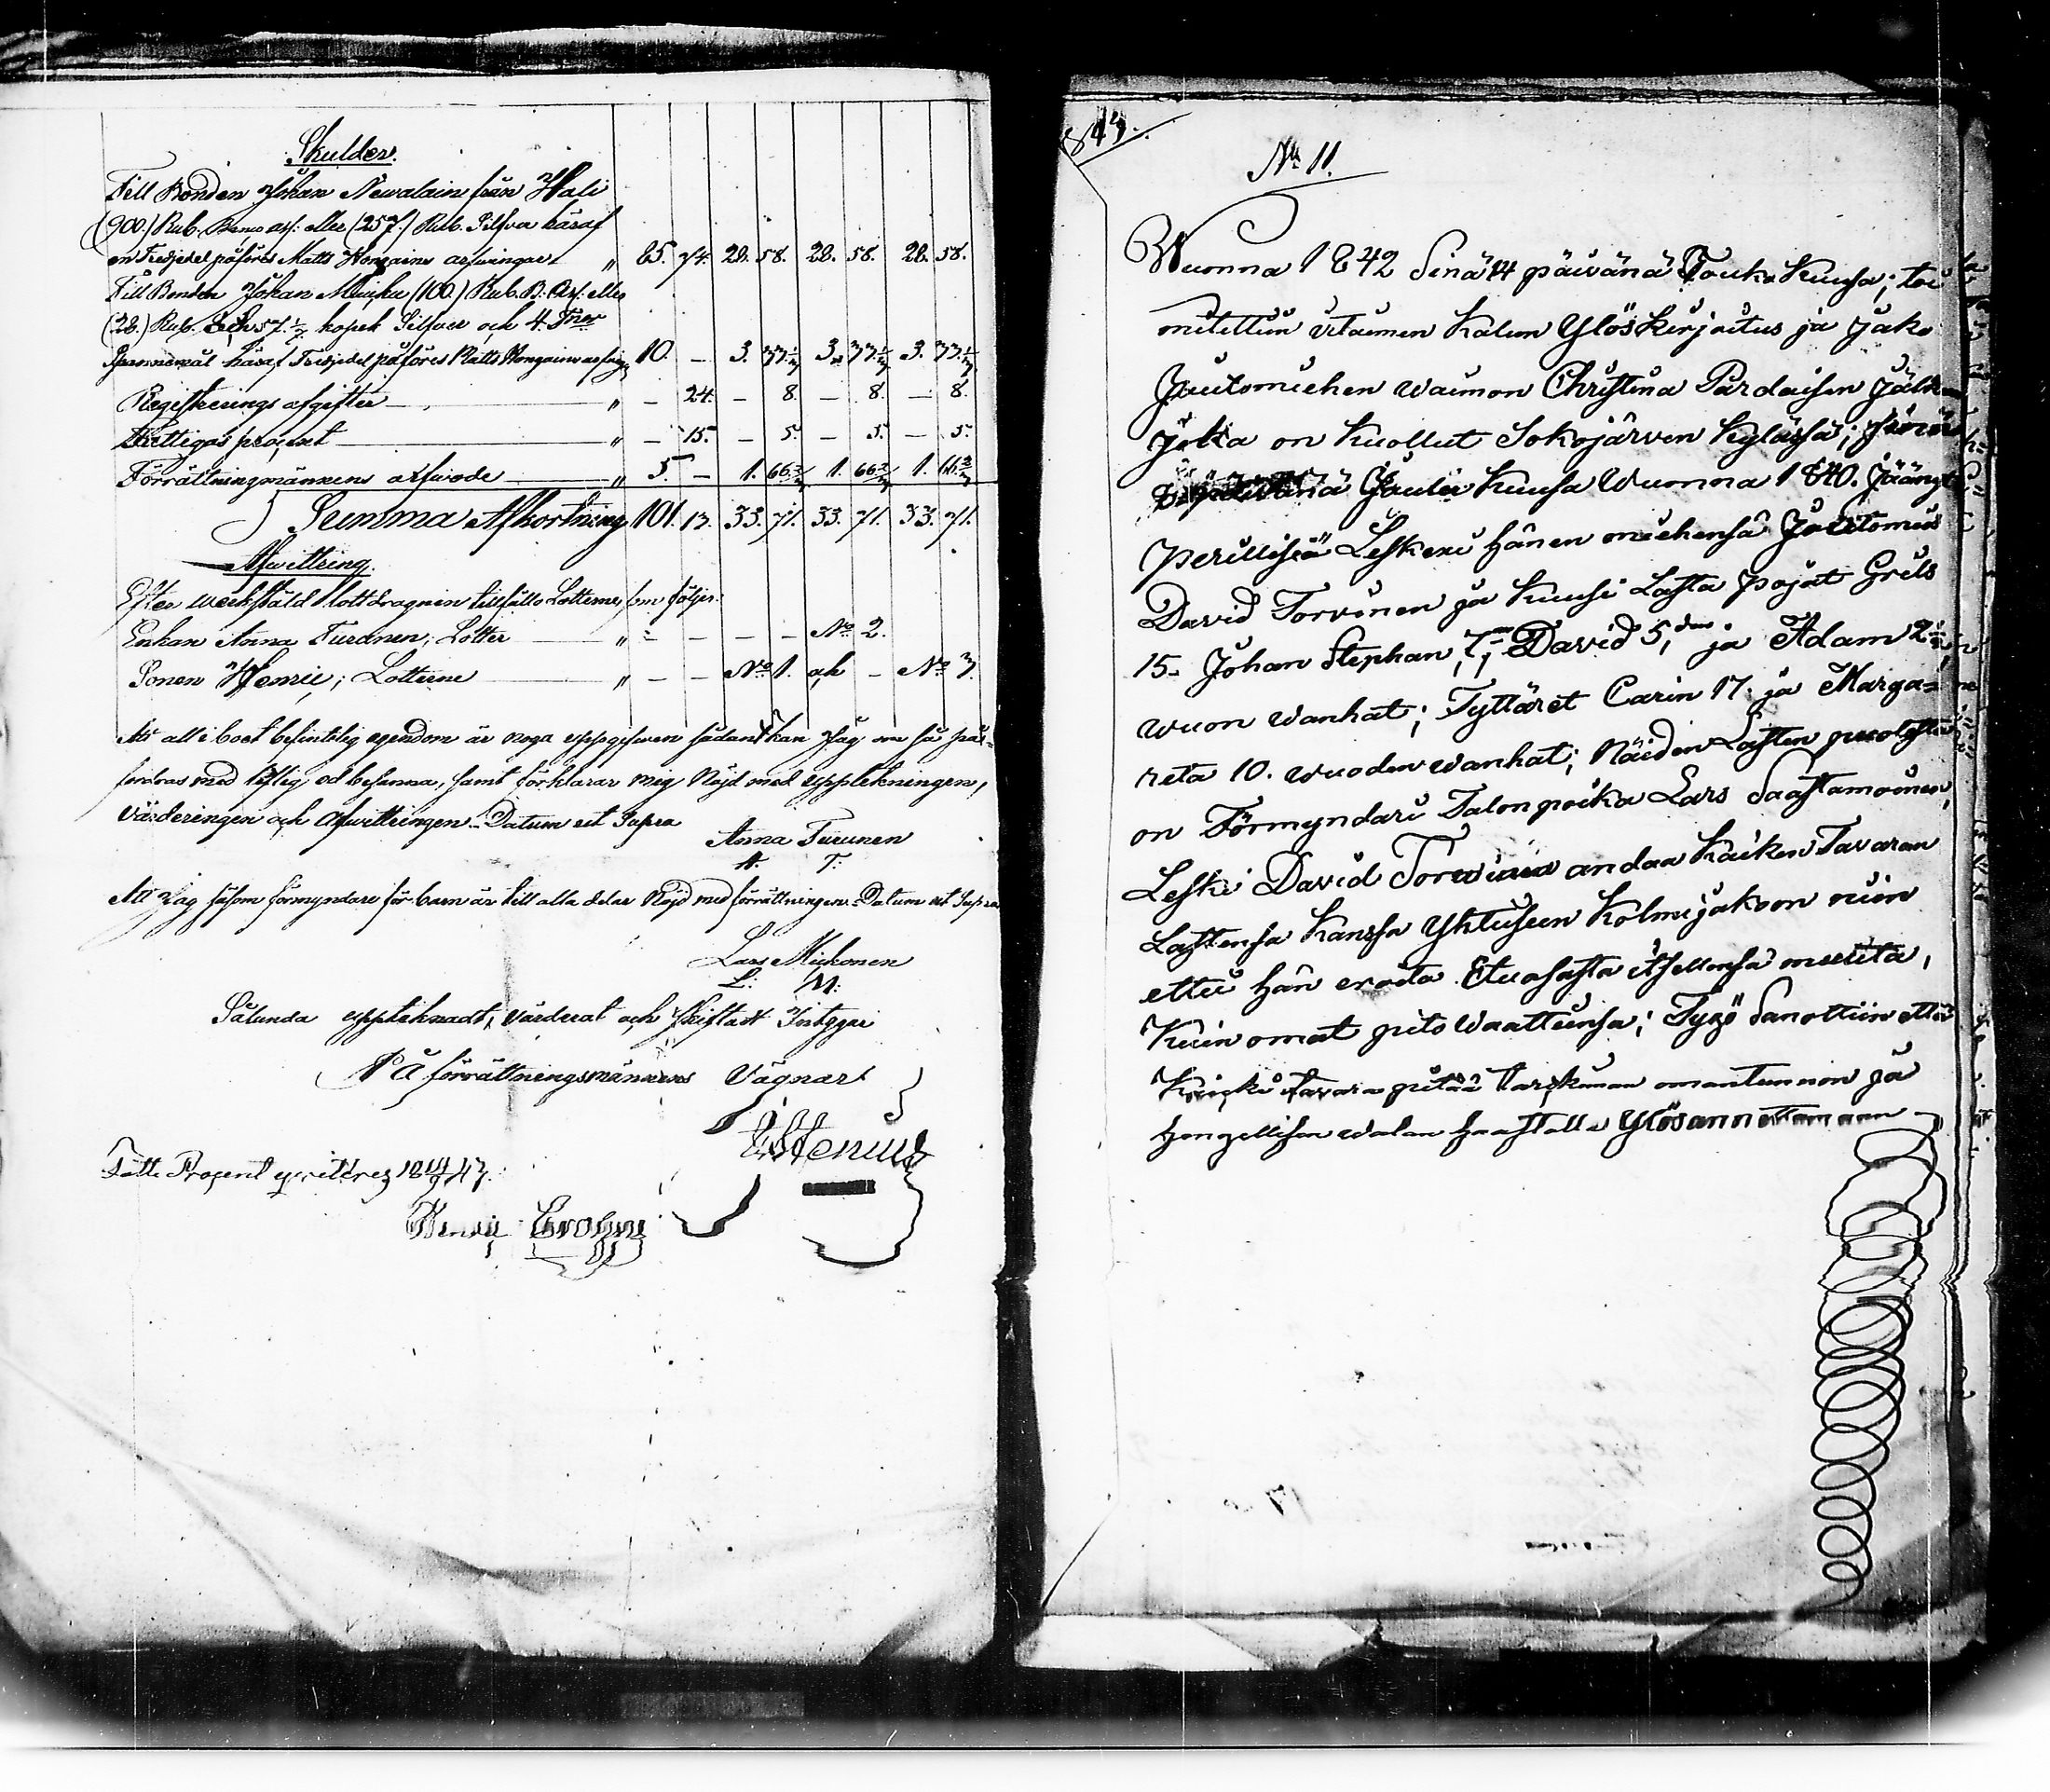 Skulder.
Till Bonden Johan Newalain från Hali
(900.) Rub. Banco ass: eller (257.) Rub. Silfver häraf
en Tredjedel påföres Matts Hongains arfwingar " 85. 74. 28. 58. 28. 58. 28. 58.
Till Bonden Johan Muika (100.) Rub. B: Ass: eller
(28.) Rub. 57 1/7 kopek Silfver och 4. Tnor
Spannemål häraf Tredjedel påföres Matts Hongains 10. — 3. 33 1/3 3. 33 1/3 3. 33 1/3
Registrerings afgifter — " — 24. — 8. — 8. — 8.
Fattigas procent — " — 15. — 5. — 5. — 5.
Förrättningmännens arfwode — " 5. — 1. 66 2/3 1. 66 2/3 1. 66 2/3
Summa Afkortning 101. 13. 33. 71. 33. 71. 33. 71.
Afwittring.
Efter werkstäld lottdragnin tillföllo Lotterne, som följer:
Enkan Anna Turanen, Lotter — " — — — No 2.
Sonen Henric; Lotterne — " — — No 1. och — No 3.
Att all i boet befintelig egendom är noga uppgifwen sådant kan Jag om så på=
fordras med liflig ed besanna, samt förklarar mig Nöjd med uppteckningen,
Värderingen och Afwittringen. Datum ut Supra
Anna Turunen
A. T.
Att Jag såsom förmyndare för barn är till alla delar Nöjd med förrättningen. Datum ut Supra
Lars Mickonen
L: M:
Sålunda upptecknadt, Värderat och skiftadt Intygar
På förrättningsmännens Vägnar
Stenius
Fatt. Procent qvitteras 18 43.
Henric
843.
No 11.
Wuonna 1842 Sinä 14 päiwänä Touko Kuusa; toi
mitettiin irtaimen Kalun Ylöskirjoitus ja Jako
Jtuitomiehen waimon Christina Pardaisen Jälken
Joka on Kuollut Sokojärwen Kylässä;
Joulu Kuusa Wuonna 1840. Jäänyt
perillisiä Leskeni hänen miehensä
David Torvinen ja Kuusi Lasta pojat Grels
15. Johan Stephan, 7, David 5, ja Adam 2
wuon wanhat; Tyttäret Carin 17. ja Marga=
reta 10. wuoden wanhat; Näiden Lasten puolesta
on Förmyndari Talonpoika Lars Saastamoinen,
Leski David Torwinen andaa Kaiken Tavaran
Lastensa Kanssa Yhteiseen Kolmijakoon niin
ettei hän eroita Etuosasta itsellensä muuta,
Kuin omat pito Waatteensa; Tyyö Sanottiin että
Kaicki tavara pitää tarckimman omantunnon ja
hengellisen walan haastolla Ylösannettamaan